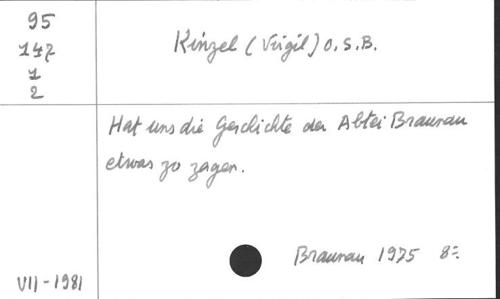 95
147
1
2
Kinzel (Virgil) O.S.B.
Hat uns die Geschichte der Abtei Braunau
etwas zu zagen.
Braunau 1925 8°.
VII - 1981